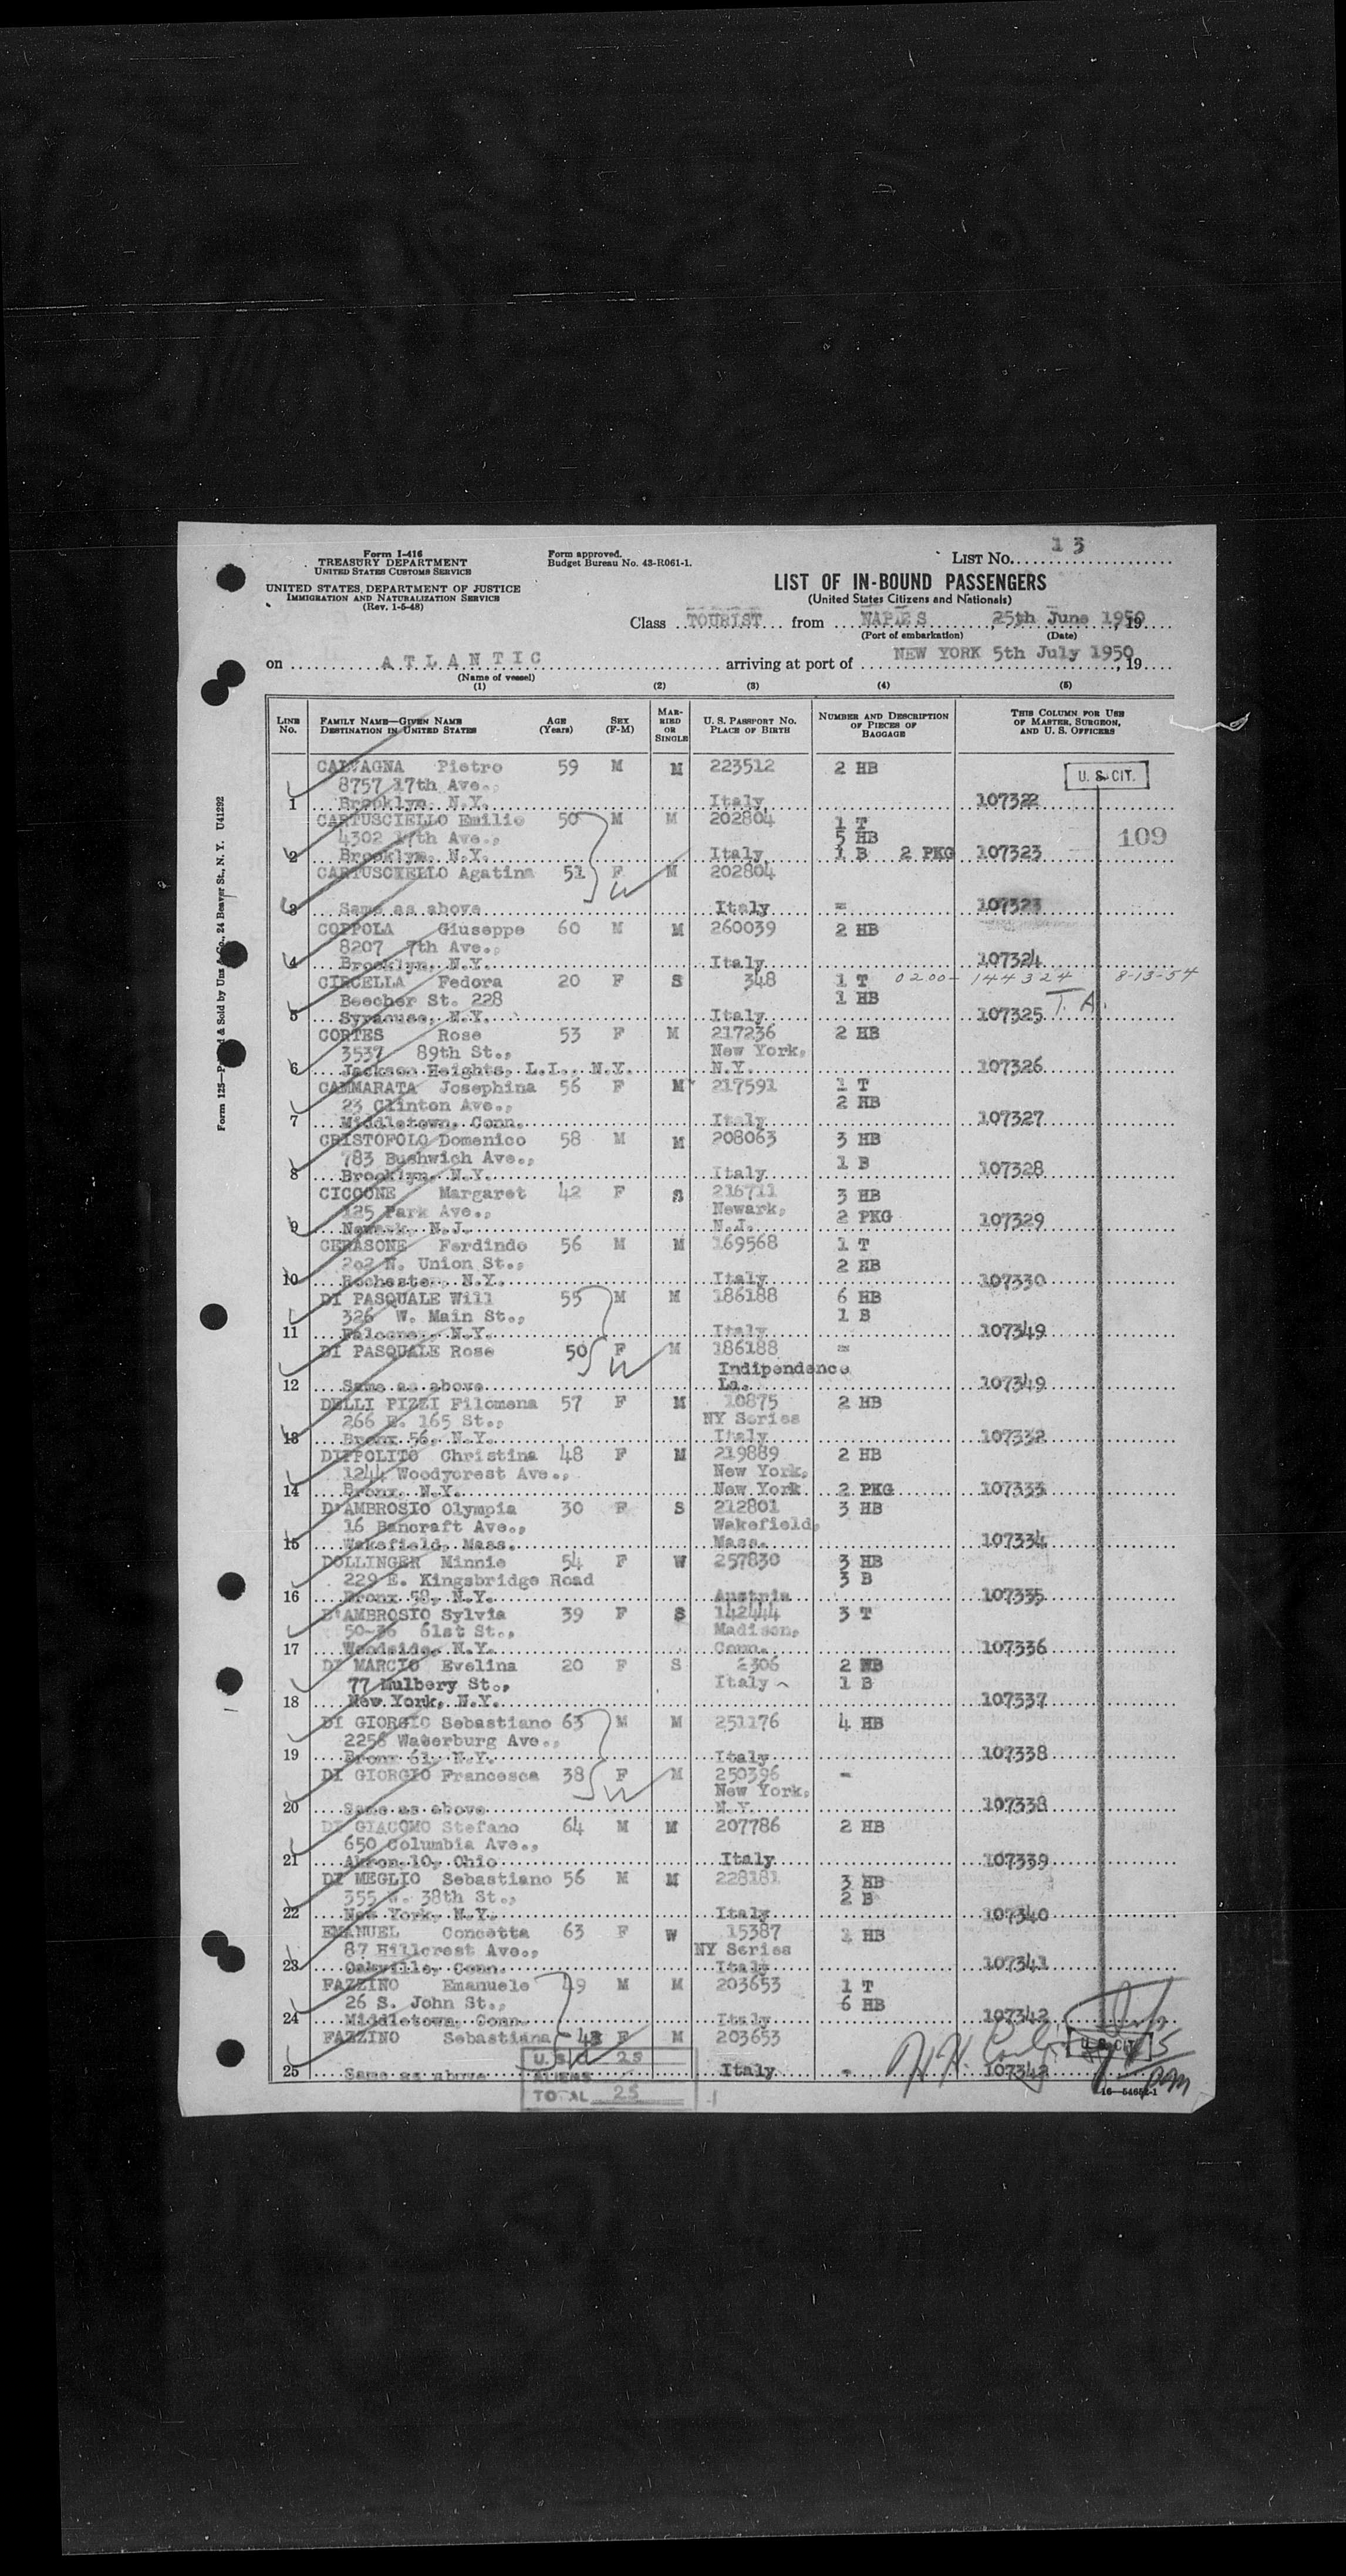 Form I-416
TREASURY DEPARTMENT
UNITED STATES CUSTOMS SERVICE
UNITED STATES DEPARTMENT OF JUSTICE
IMMIGRATION AND NATURALIZATION SERVICE
(Rev. 1-5-48)
Form approved.
Budget Bureau No. 43-R061-1.
LIST No. 13
LIST OF IN-BOUND PASSENGERS
(United States Citizens and Nationals)
Class TOURIST from NAPLES, 25th June 1950, 19
(Port of embarkation) (Date)
on ATLANTIC arriving at port of NEW YORK 5th July 1950, 19
(Name of vessel)
(1) (2) (3) (4) (5)
LINE No. FAMILY NAME—GIVEN NAME DESTINATION IN UNITED STATES AGE (Years) SEX (F-M) MARRIED OR SINGLE U. S. PASSPORT NO. PLACE OF BIRTH NUMBER AND DESCRIPTION OF PIECES OF BAGGAGE THIS COLUMN FOR USE OF MASTER, SURGEON, AND U. S. OFFICERS
CALVAGNA Pietro 59 M M 223512 2 HB
8757 17th Ave., U. S. CIT.
1 Brooklyn, N.Y. Italy 107322
CARTUSCIELLO Emilio 50 M M 202804 1 T
4302 17th Ave., 5 HB 109
2 Brooklyn, N.Y. Italy 1 B 2 PKG 107323
CARTUSCIELLO Agatina 51 F M 202804
W
3 Same as above Italy = 107323
COPPOLA Giuseppe 60 M M 260039 2 HB
8207 7th Ave.,
4 Brooklyn, N.Y. Italy 107324
CIRCELLA Fedora 20 F S 348 1 T 0200-144324 8-13-54
Beecher St. 228 1 HB T.A.
5 Syracuse, N.Y. Italy 107325
CORTES Rose 53 F M 217236 2 HB
3537 89th St., New York,
6 Jackson Heights, L.I., N.Y. N.Y. 107326
CAMMARATA Josephina 56 F M 217591 1 T
23 Clinton Ave., 2 HB
7 Middletown, Conn. Italy 107327
CRISTOFOLO Domenico 58 M M 208063 3 HB
783 Bushwich Ave., 1 B
8 Brooklyn, N.Y. Italy 107328
CICCONE Margaret 42 F S 216711 3 HB
125 Park Ave., Newark, 2 PKG
9 Newark, N.J. N.J. 107329
CERASONE Ferdindo 56 M M 169568 1 T
202 N. Union St., 2 HB
10 Rochester, N.Y. Italy 107330
DI PASQUALE Will 55 M M 186188 6 HB
326 W. Main St., 1 B
11 N.Y. Italy 107349
DI PASQUALE Rose 50 F M 186188 =
W Indipendence
12 Same as above La. 107349
DELLI PIZZI Filomena 57 F M 10875 2 HB
266 E. 165 St., NY Series
13 Bronx 56, N.Y. Italy 107332
DIPPOLITO Christina 48 F M 219889 2 HB
1244 Woodycrest Ave., New York,
14 Bronx, N.Y. New York 2 PKG 107333
D'AMBROSIO Olympia 30 F S 212801 3 HB
16 Bancraft Ave., Wakefield,
15 Wakefield, Mass. Mass. 107334
DOLLINGER Minnie 54 F W 257830 3 HB
229 E. Kingsbridge Road 3 B
16 Bronx 58, N.Y. Austria 107335
D'AMBROSIO Sylvia 39 F S 142444 3 T
50-36 61st St., Madison,
17 Woodside, N.Y. Conn. 107336
DI MARCIO Evelina 20 F S 2306 2 WB
77 Mulbery St., Italy 1 B
18 New York, N.Y. 107337
DI GIORGIO Sebastiano 63 M M 251176 4 HB
2256 Waterburg Ave.,
19 Bronx 61, N.Y. Italy 107338
DI GIORGIO Francesca 38 F M 250396 -
W New York,
20 Same as above N.Y. 107338
DI GIACOMO Stefano 64 M M 207786 2 HB
650 Columbia Ave.,
21 Akron 10, Ohio Italy 107339
DI MEGLIO Sebastiano 56 M M 228181 3 HB
355 W. 38th St., 2 B
22 New York, N.Y. Italy 107340
EMANUEL Concetta 63 F W 15387 1 HB
87 Hillcrest Ave., NY Series
23 Oakville, Conn. Italy 107341
FAZZINO Emanuele 49 M M 203653 1 T
26 S. John St., 6 HB
24 Middletown, Conn. Italy 107342
FAZZINO Sebastiana 43 F M 203653
U. S. CIT.
25 Same as above Italy - 107342
U.S.C. 25
ALIENS
TOTAL 25
16—54652-1
Form 125—Printed & Sold by Unz & Co., 24 Beaver St., N. Y. U41292